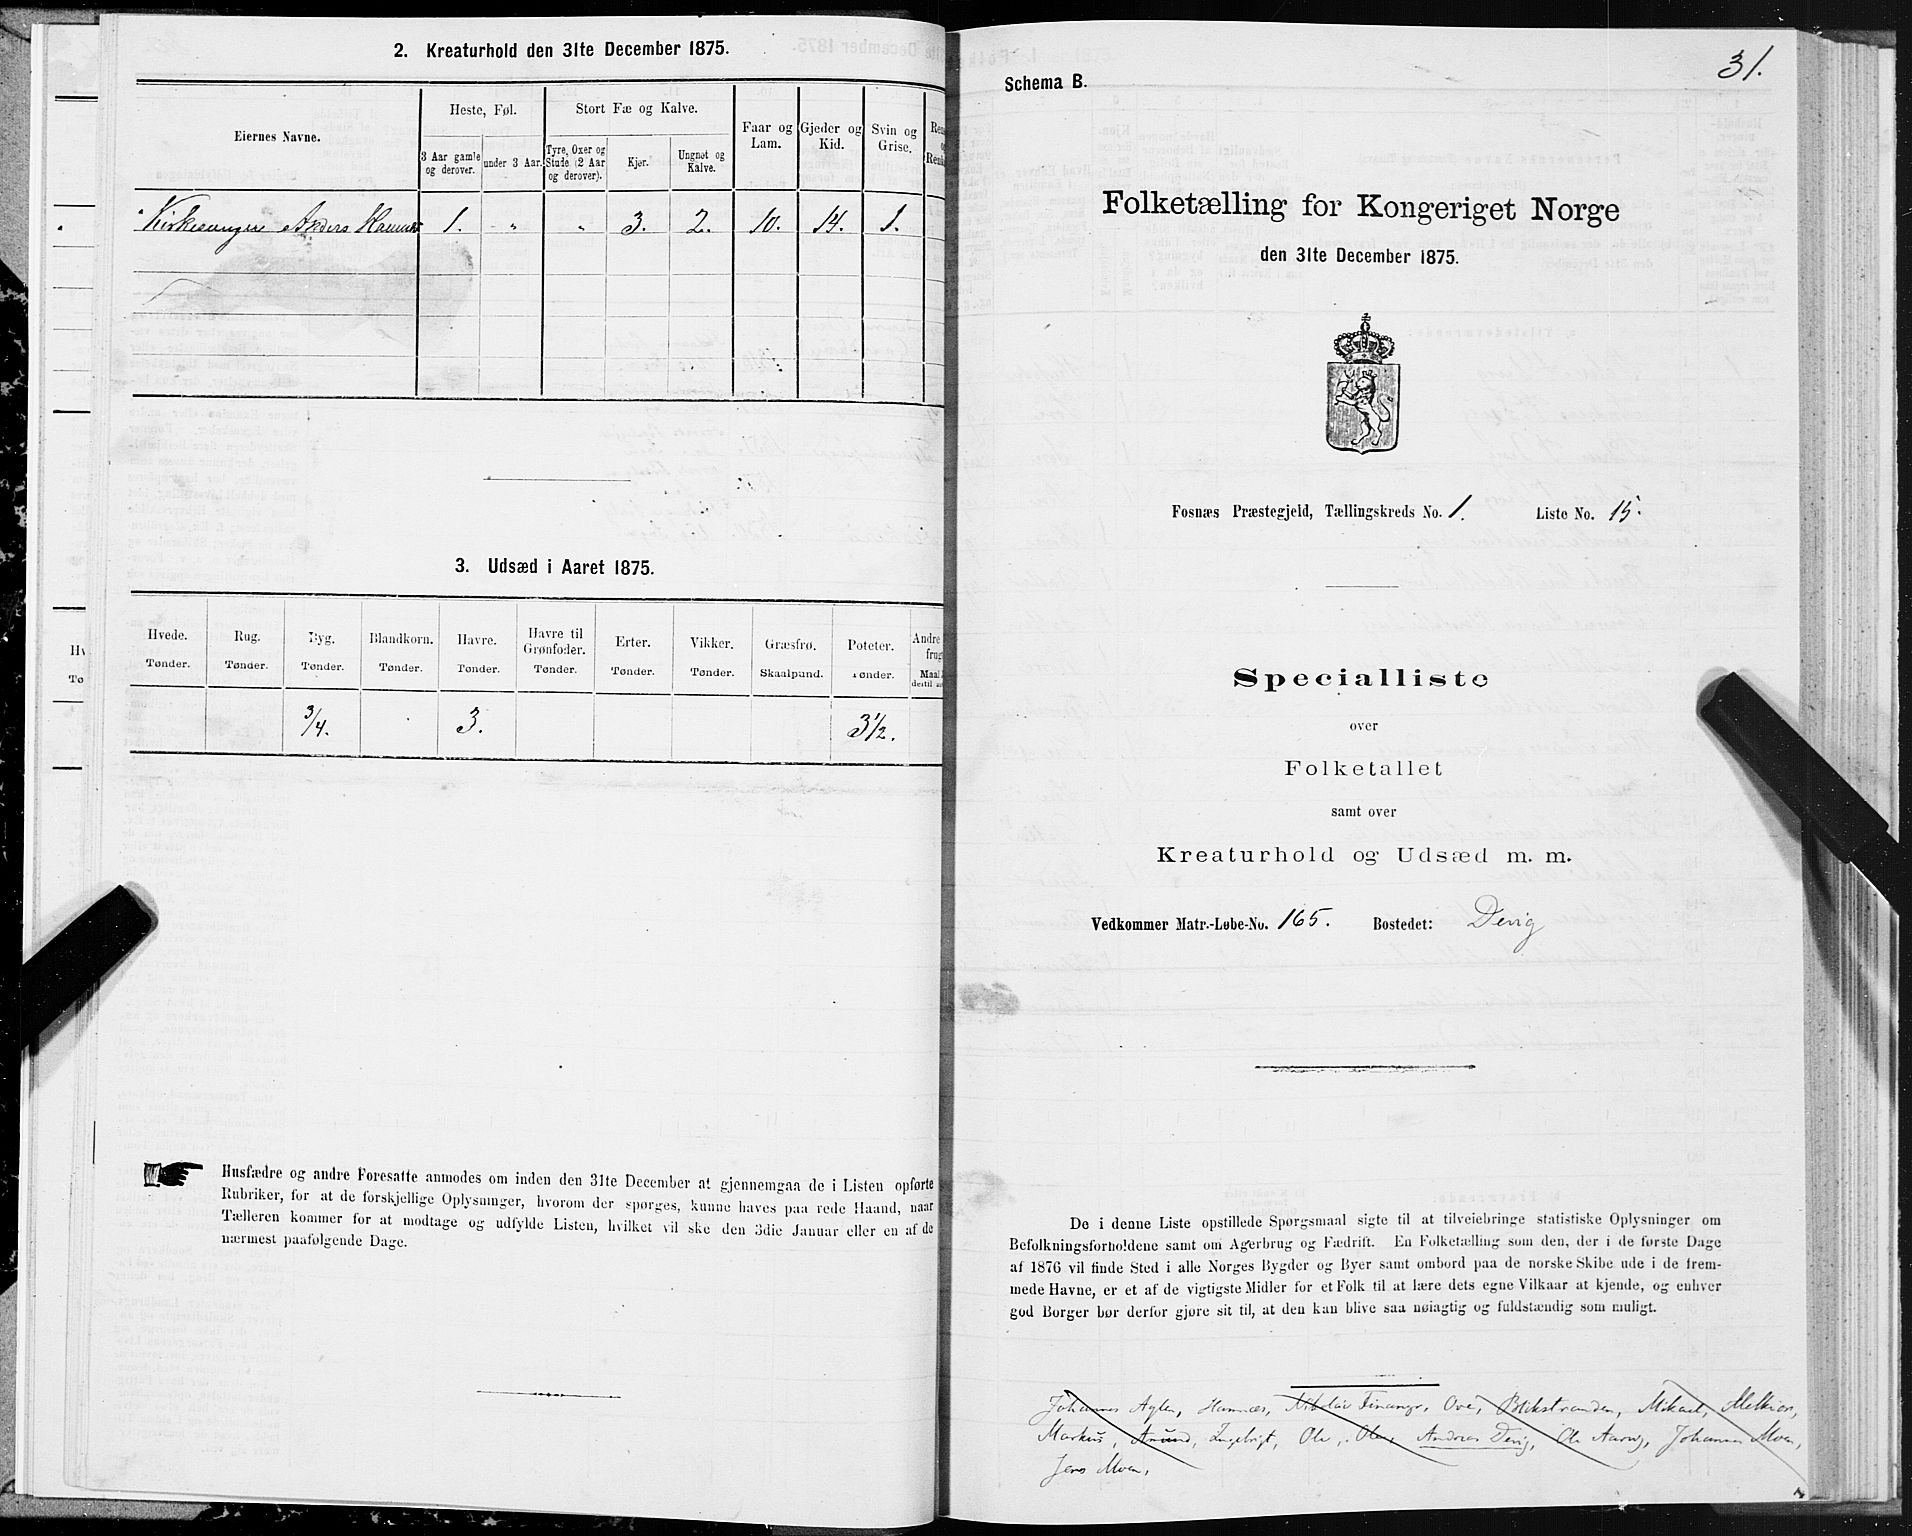 2. Kreaturhold den 31te December 1875.
Eiernes Navne.
Heste, Føl.
Stort Fæ og Kalve.
Faar og Lam.
Gjeder og Kid.
Svin og Grise.
3 Aar gamle og derover.
under 3 Aar.
Tyre, Oxer og Stude (2 Aar og derover).
Kjør.
Ungnøt og Kalve.
Kirkesanger Anders 1. " " 3. 2. 10. 14. 1.
3. Udsæd i Aaret 1875.
Hvede. Rug. Byg. Blandkorn. Havre. Havre til Grønfoder. Erter. Vikker. Græsfrø. Poteter. Andre
Tønder. Tønder. Tønder. Tønder. Tønder. Tønder. Tønder. Tønder. Skaalpund. Tønder. Maal
3/4. 3. 3 1/2.
Husfædre og andre Foresatte anmodes om inden den 31te December at gjennemgaa de i Listen opførte
Rubriker, for at de forskjellige Oplysninger, hvorom der spørges, kunne haves paa rede Haand, naar
Tælleren kommer for at modtage og udfylde Listen, hvilket vil ske den 3die Januar eller en af de
nærmest paafølgende Dage.
31.
Schema B.
Folketælling for Kongeriget Norge
den 31te December 1875.
Fosnæs Præstegjeld, Tællingskreds No. 1. Liste No. 15.
Specialliste
over
Folketallet
samt over
Kreaturhold og Udsæd m. m.
Vedkommer Matr.-Løbe-No. 165. Bostedet: Devig
De i denne Liste opstillede Spørgsmaal sigte til at tilveiebringe statistiske Oplysninger om
Befolkningsforholdene samt om Agerbrug og Fædrift. En Folketælling som den, der i de første Dage
af 1876 vil finde Sted i alle Norges Bygder og Byer samt ombord paa de norske Skibe ude i de frem-
mede Havne, er et af de vigtigste Midler for et Folk til at lære dets egne Vilkaar at kjende, og enhver
god Borger bør derfor gjøre sit til, at den kan blive saa nøiagtig og fuldstændig som muligt.
Johannes Aglen, Hamnes, Nikolai Ove, Blikstranden, Mikael, Melkior,
Markus, Amund, Ingebrigt, Ole, Olea, Andreas Devig, Ole Johannes Moen,
Jens Moen,